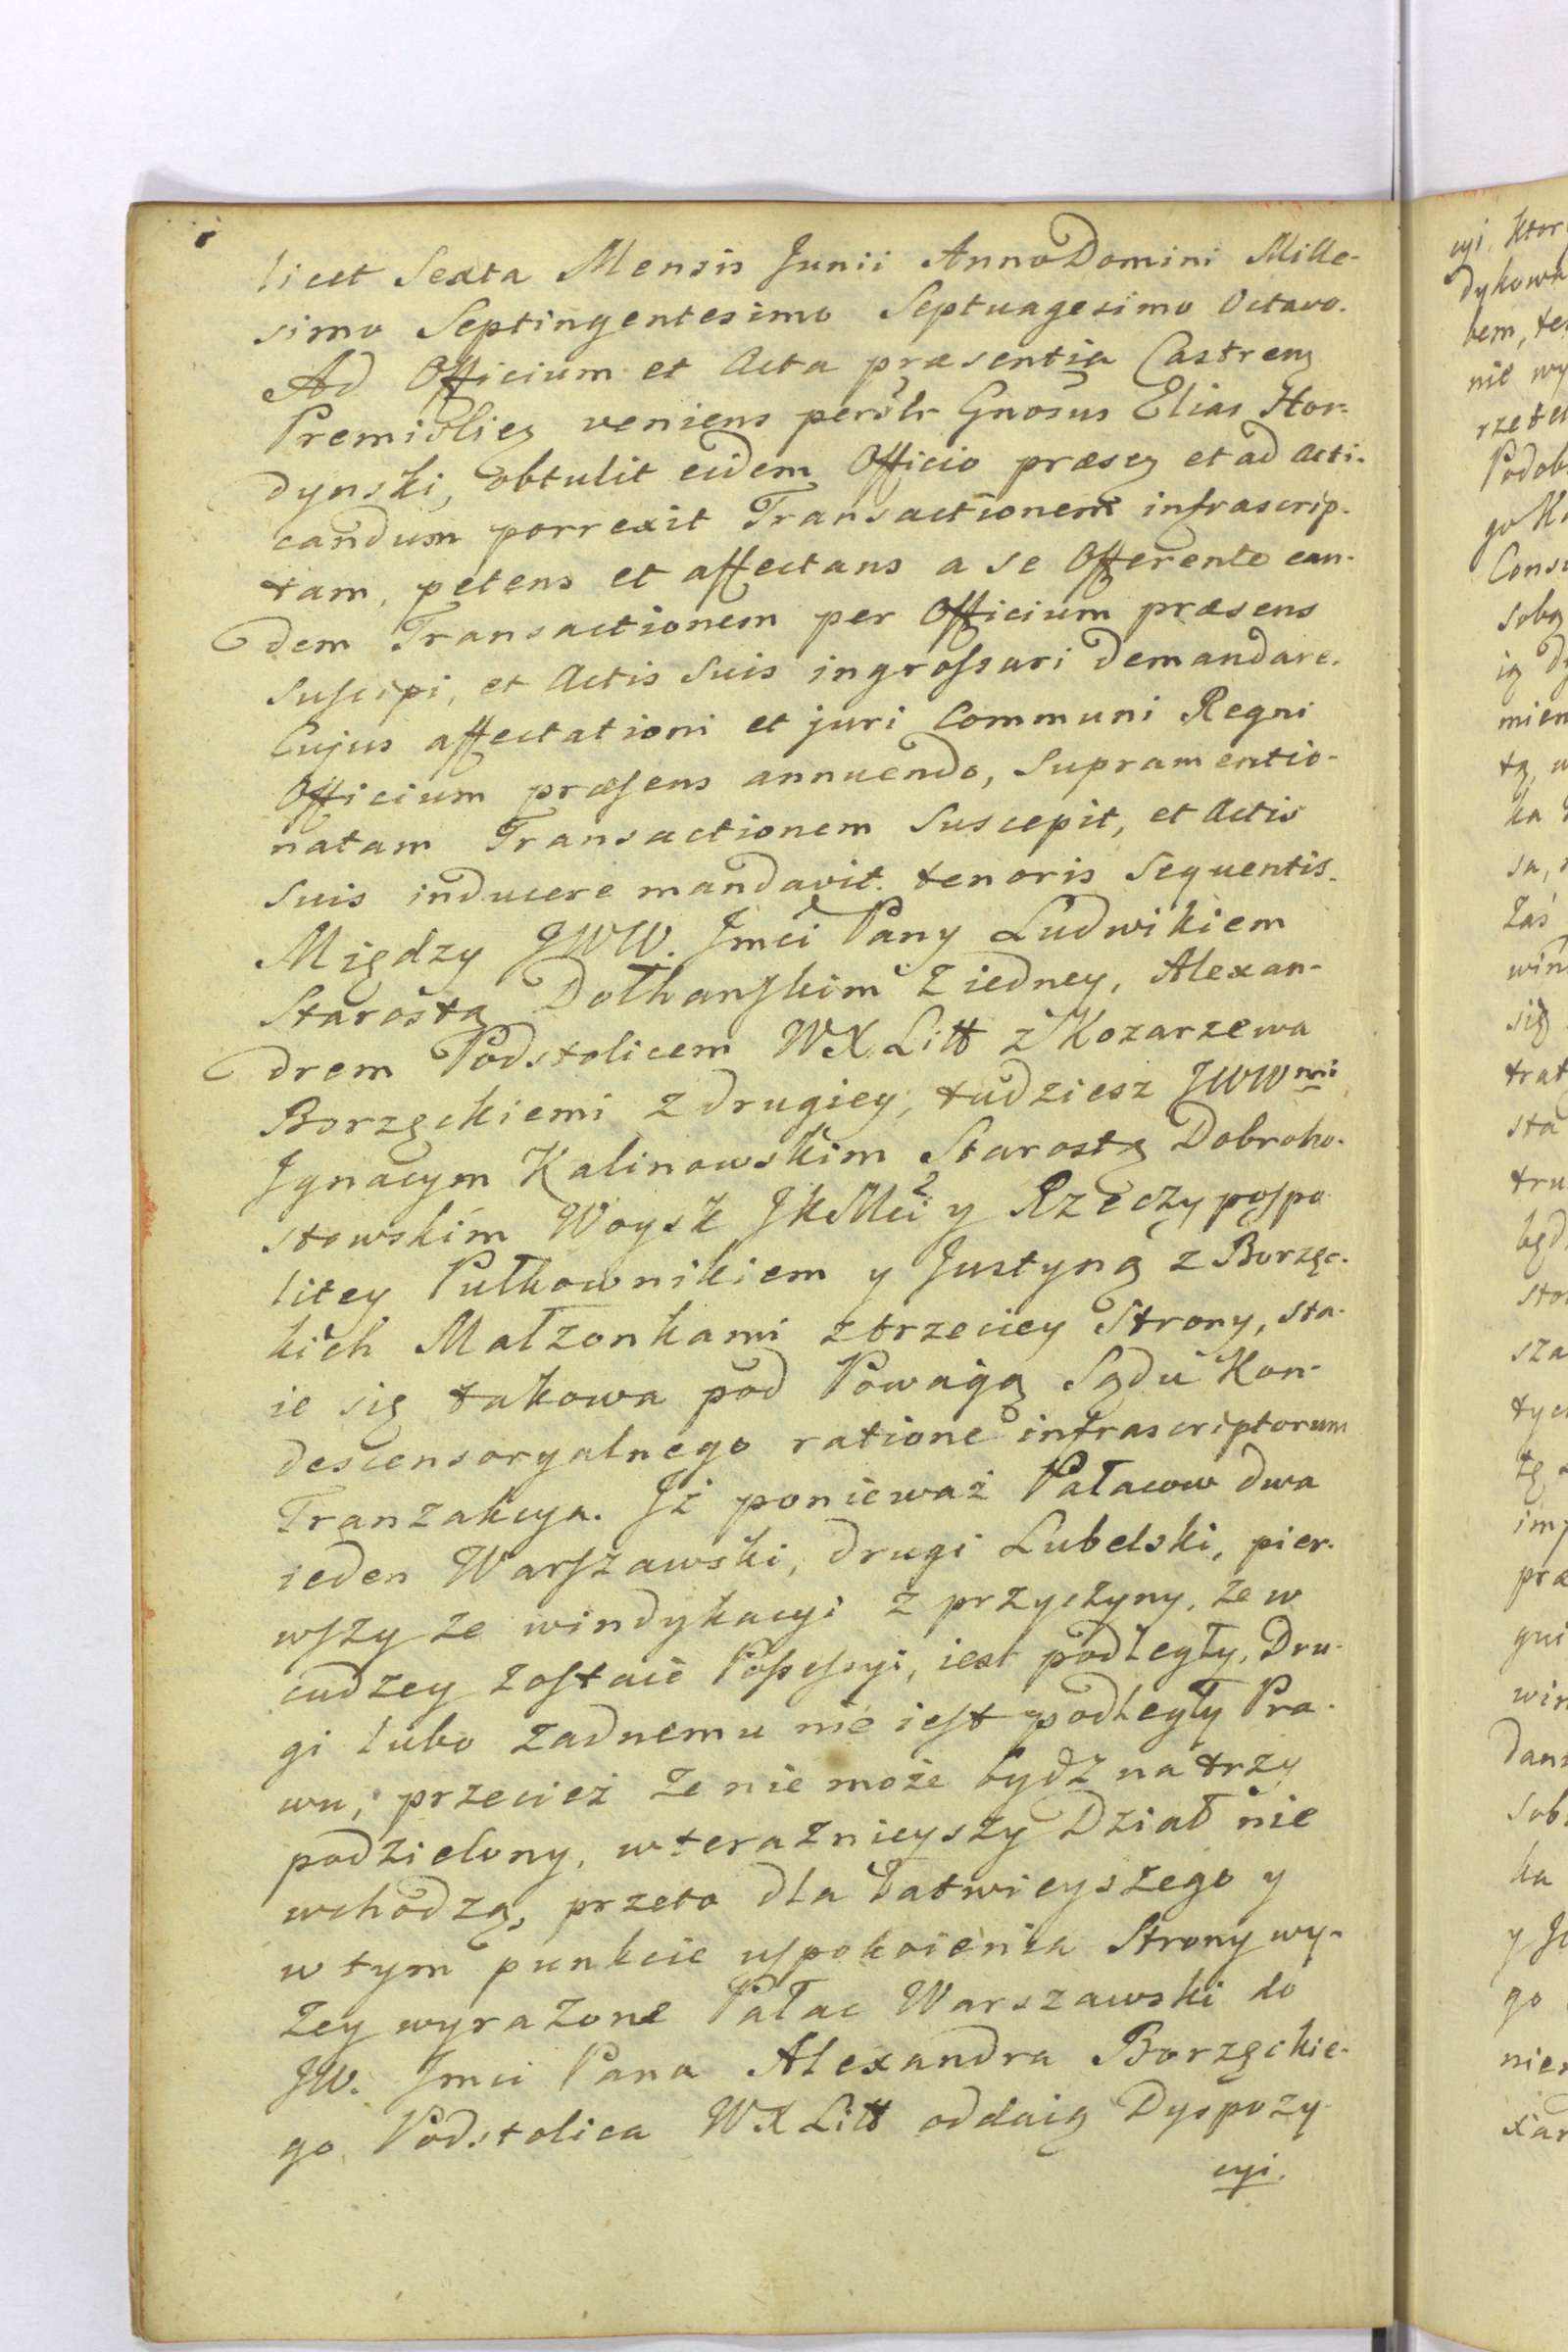 licet Sexta Mensis Junii Anno Domini Mille-
simo Septingentesimo Septuagesimo Octavo.
Ad Officium et Acta præsentia Castreng
Premisliеg veniens persłr Gnosus Elias Hor-
dynski, obtulit eidem Officio præseg et ad acti-
candum porrexit Transactionem infrascrip-
tam, petens et affectans a se Offerente ean-
dem Transactionem per Officium præsens
suscipi, et Actis Suis ingrossari demandare.
Cujus affectationi et juri Communi Regni
Officium præsens annuendo, Supramentio-
natam Transactionem Suscepit, et Actis
Suis inducere mandavit. tenoris Sequentis.
Między JWW. Jmci Pany Ludwikiem
Starostą Dołhanskim z iedney, Alexan-
drem Podstolicem WXLitt z Kozarzewa
Borzęckiemi z drugiey, tudziesz JWWmi
Jgnacym Kalinowskim Starostą Dobroho-
stowskim Woysk JKMci y Rzeczypospo
litey Pułkownikiem y Justyną z Borzęc-
kich Małzonkami z trzeciey Strony, sta-
ie się takowa pod Powagą Sądu Kon-
descensoryalnego ratione infrascriptorum
Tranzakcya. Jż ponieważ Pałacow dwa
ieden Warszawski, drugi Lubelski, pier-
wszy ze windykacyi z przyczyny, że w
cudzey zostaie Possessyi, iest podległy, Dru-
gi lubo żadnemu nie iest podległy Pra-
wu, przecież że nie może bydź na trzy
podzielony, w teraznieyszy Dział nie
wchodzą, przeto dla łatwieyszego y
w tym punkcie uspokoienia Strony wy-
żey wyrażone Pałac Warszawski do
JW. Jmci Pana Alexandra Borzęckie-
go Podstolica WXLitt oddaią Dyspozy-
cyi.